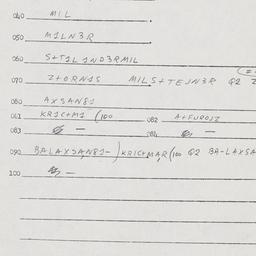 040 MIL
050 M1LN3R
060 S+T1L 1ND3RMIL
070 Z+ORN1S MILS+TEJN3R Q2
080 AXSAN81
081 KR1C+M1 (100 082 A+FUROIZ
083 — 084 —
090 BALAXSAN81-)KRICHMAR(100 Q2 BA-LAXSA
100 —